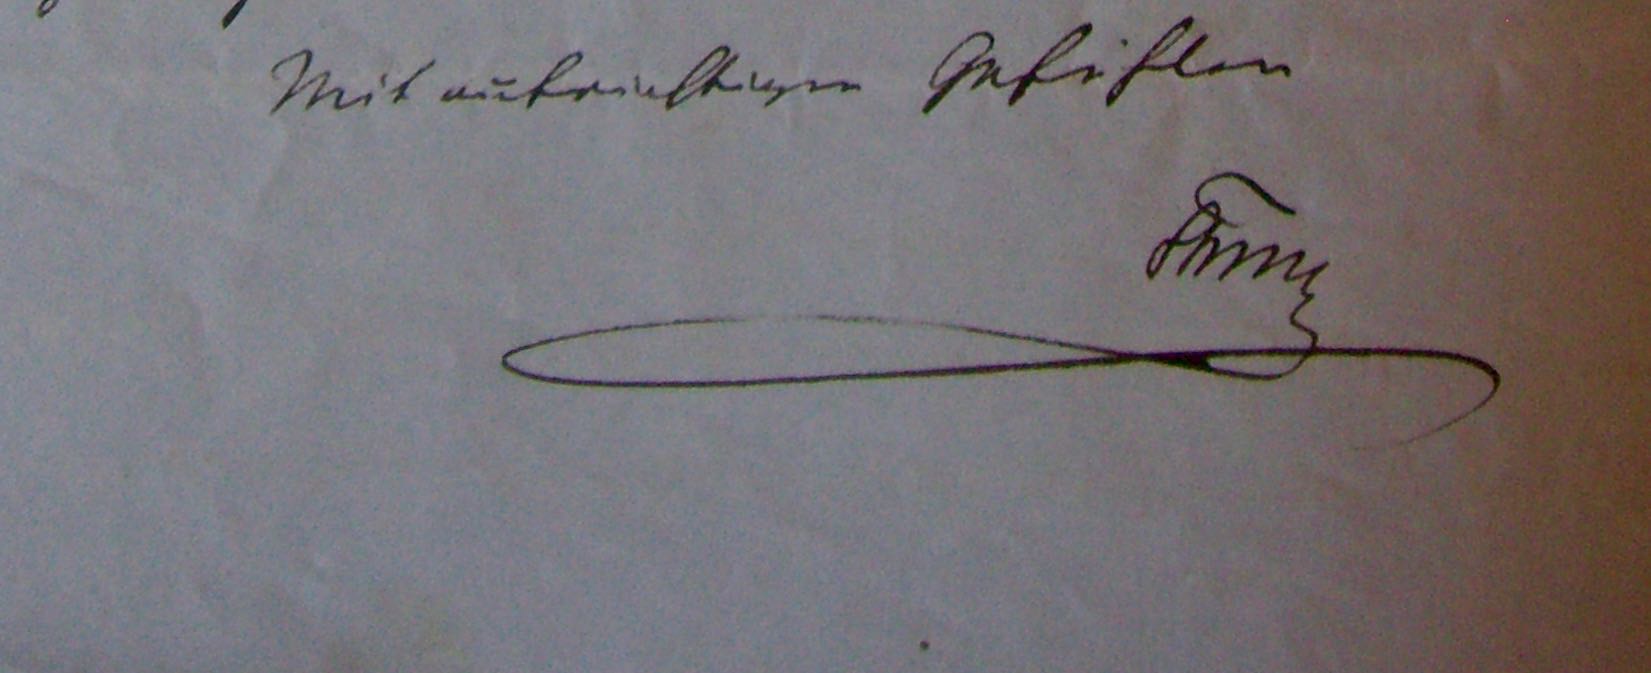 Mit aufrichtigen Gefühlen